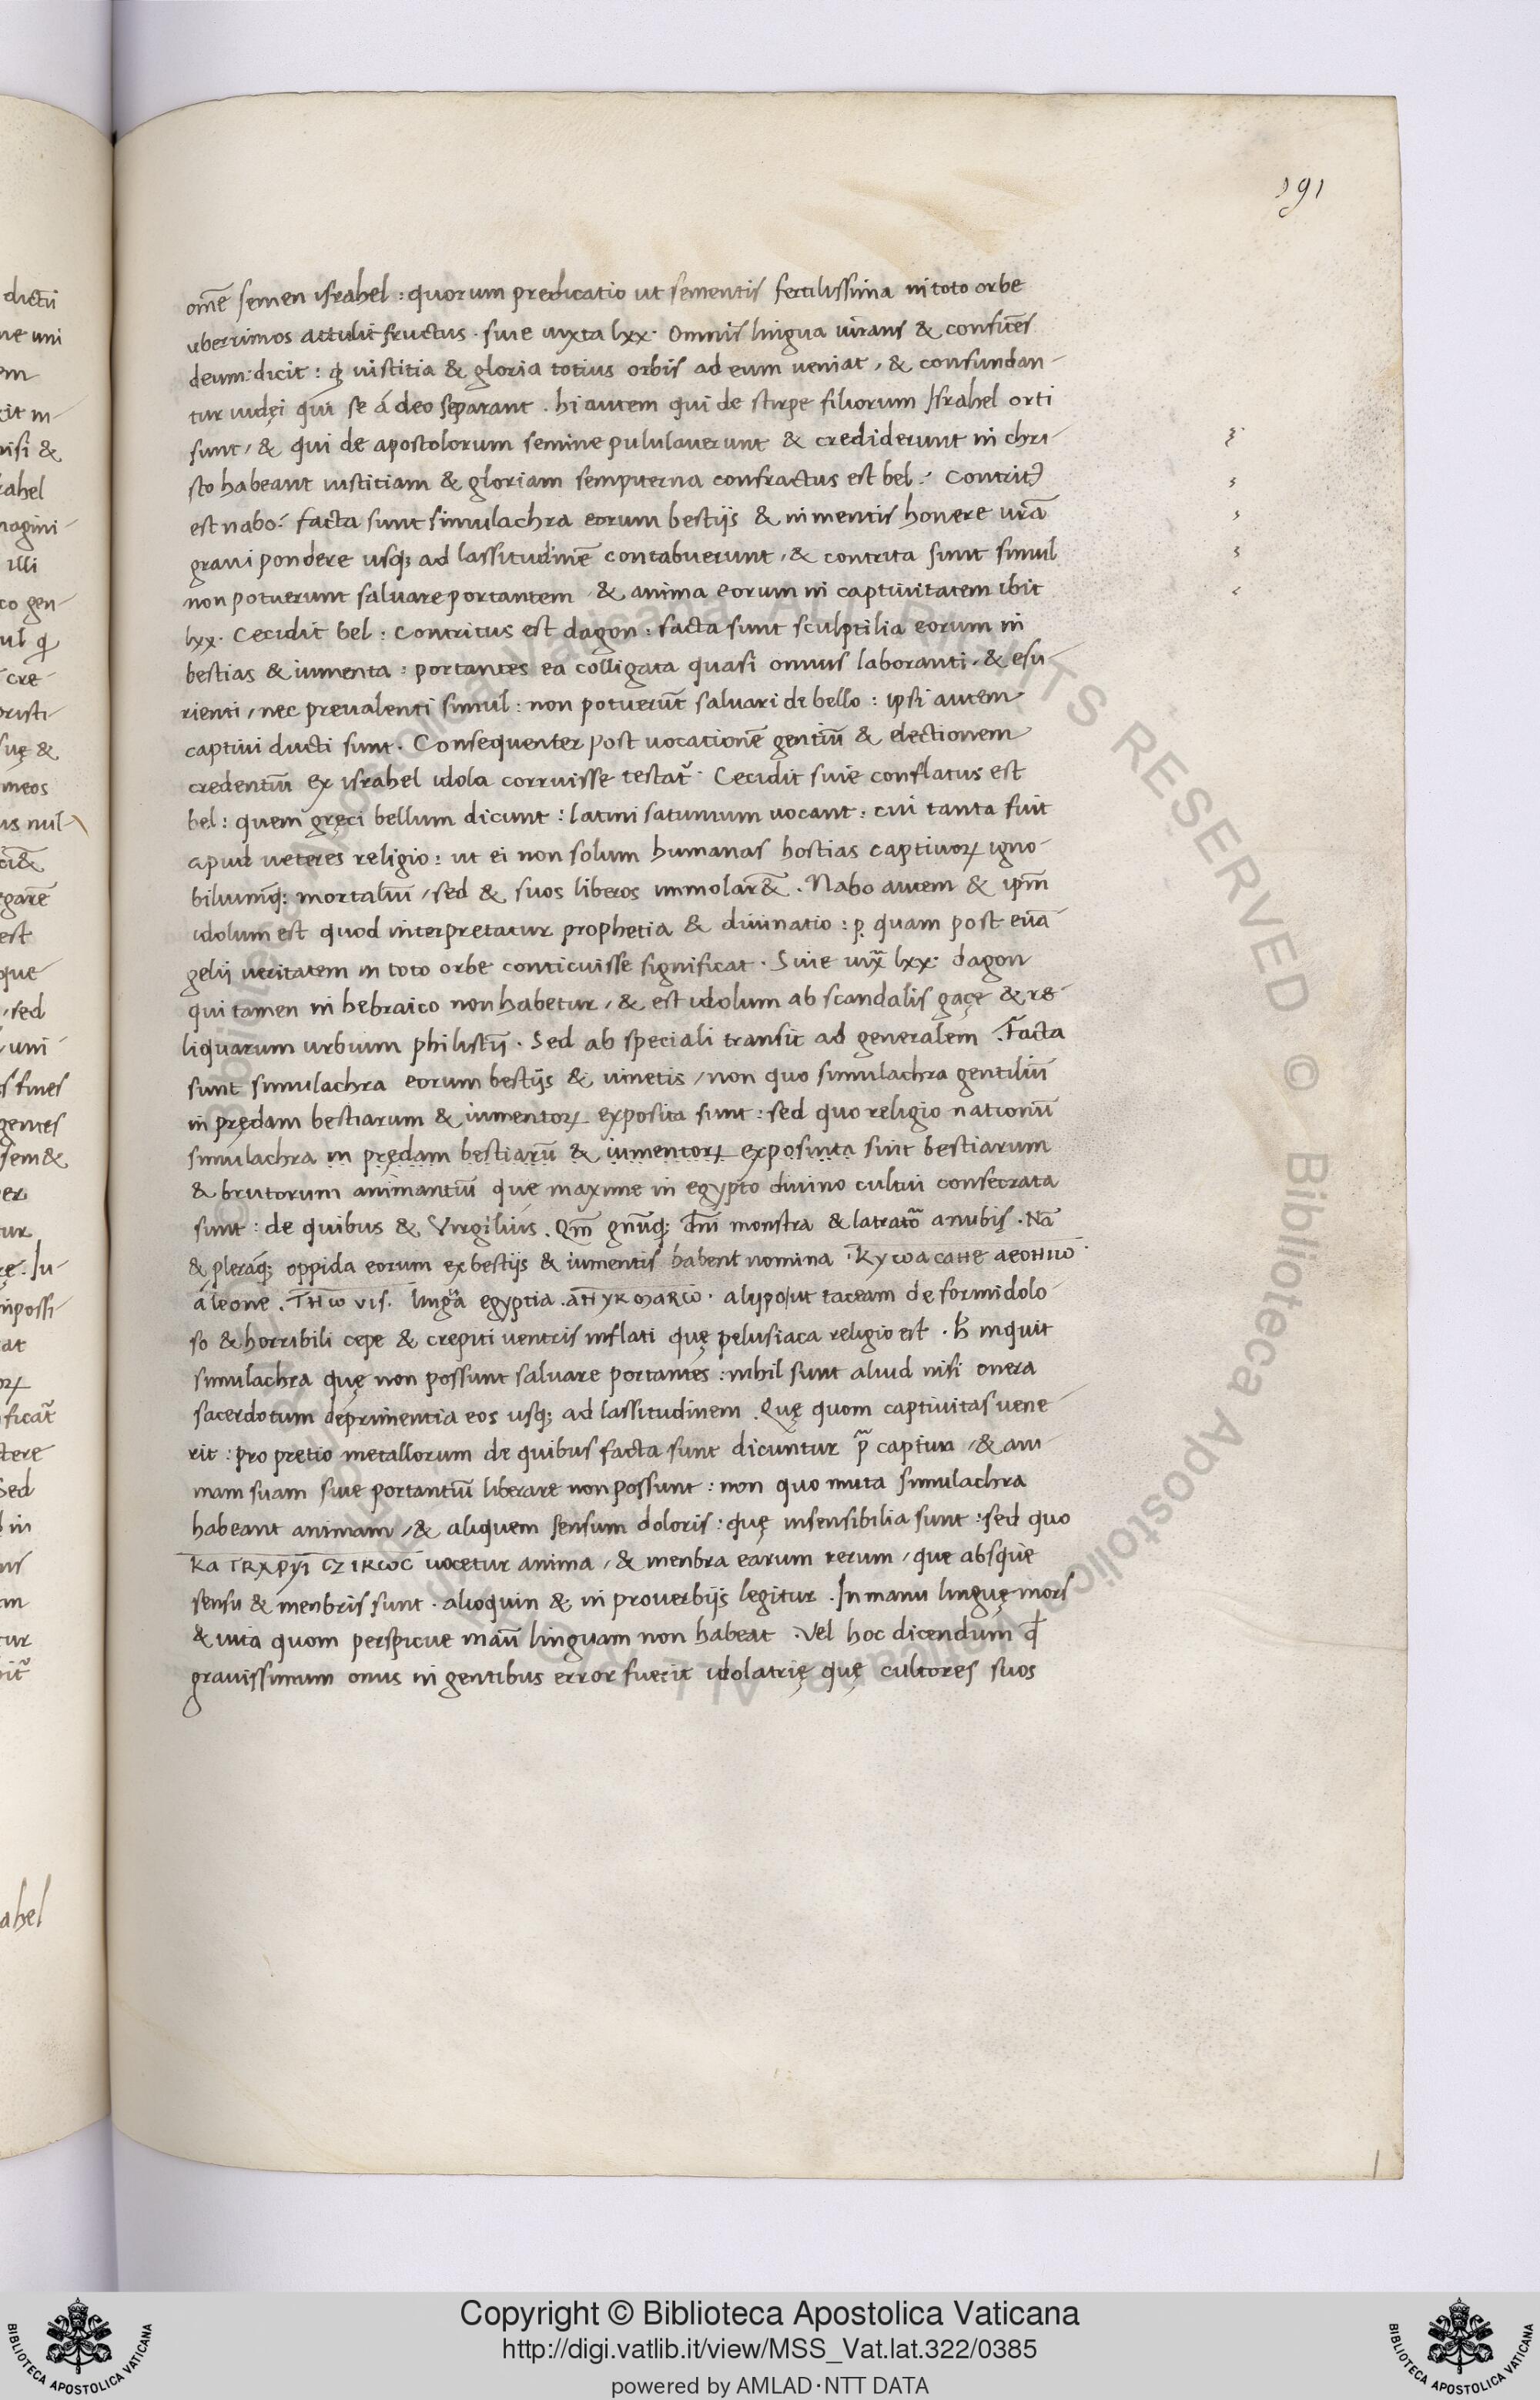 191
om̄e semen israhel : quorum predicatio ut sementis fertilissima in toto orbe
uberrimos attulit fructus . siue iuxta lxx . Omnis lingua iurans & confitēs
deum dicit : iustitia & gloria totius orbis ad eum ueniat , & confundan-
tur iudęi qui se á deo separant . hi autem qui de stirpe filiorum Israhel orti
sunt , & qui de apostolorum semine pululauerunt & crediderunt in chri-
sto habeant iustitiam & gloriam sempiterna confractus est bel : Contritꝰ
est nabo : facta sunt simulachra eorum bestijs & iumentis honere ur̄a
graui pondere usqꝫ ad lassitudinē contabuerunt , & contrita sunt simul
non potuerunt saluare portantem , & anima eorum in captiuitatem ibit
lxx . Cecidit bel : Contritus est dagon : facta sunt sculptilia eorum in
bestias & iumenta : portantes ea colligata quasi onnus laboranti , & esu-
rienti , nec preualenti simul : non potuerūt saluari de bello : ipsi autem
captiui ducti sunt . Consequenter post uocationē gentiū & electionem
credentiū ex israhel idola corruisse testat᷑ . Cecidit siue conflatus est
bel : quem gręci bellum dicunt : latini saturnum uocant : cui tanta fuit
apud ueteres religio : ut ei non solum humanas hostias captiuoꝝ igno-
biliumqꝫ mortaliū , sed & suos liberos immolar&̄ . Nabo autem & ip̄m
idolum est quod interpretatur prophetia & diuinatio : ꝑ quam post euā
gelij ueritatem in toto orbe conticuisse significat . Siue iux̄ lxx . dagon
qui tamen in hebraico non habetur , & est idolum ab scandalis gaçę & re-
liquarum urbium philistij . Sed ab speciali transit ad generalem . Facta
sunt simulachra eorum bestijs & uinetis , non quo simulachra gentiliū
in prędam bestiarum & iumentoꝝ exposita sunt : sed quo religio nationū
simulachra in prędam bestiarū & iumentoꝝ exposinta sint bestiarum
& brutorum animantiū que maxime in egypto diuino cultui consecrata
sunt : de quibus & Virgilius . Qm̄ gnūqꝫ dm̄ monstra & latrator anubis . Nā
& plerāqꝫ oppida eorum ex bestijs & iumentis habent nomina . Κyωa cαηe λeοηιω
á leone . Τηω uis . lingᵃ egyptia . αηyκ ομαRιω . a lypo / ut taceam de formidolo-
so & horribili cepe & crepitu uentris inflati quę pelusiaca religio est . h̄ inquit
simulachra quę non possunt saluare portantes : nihil sunt aliud nisi onera
sacerdotum deprimentia eos usqꝫ ad lassitudinem . Quę quom captiuitas uene-
rit : pro pretio metallorum de quibus facta sunt dicuntur captiua , & ani-
mam suam siue portantiū liberare non possunt : non quo muta simulachra
habeant animam , & aliquem sensum doloris : quę insensibilia sunt : sed quo
κα ΤRΧΡyι CΖΙΚωC uocetur anima , & menbra earum rerum , que absque
sensu & menbris sunt . alioquin & in prouerbijs legitur . In manu linguę mors
& uita quom perspicue manū linguam non habeat . Vel hoc dicendum qđ
grauissimum onus in gentibus error fuerit idolatrię quę cultores suos
Copyright © Biblioteca Apostolica Vaticana
http://digi.vatlib.it/view/MSS_Vat.lat.322/0385
powered by AMLAD·NTT DATA